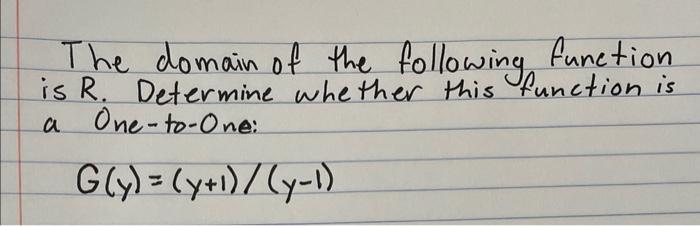 The domain of the following function
is R. Determine whether this function is
a One-to-One:
G(y) = (y+1)/(y-1)